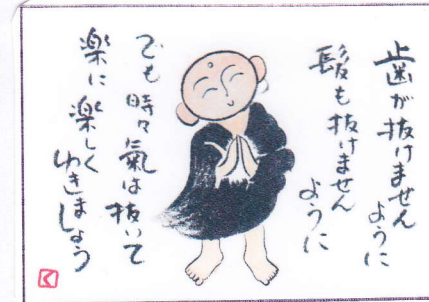 歯が抜けません
ように
髪も抜けません
ように
でも時々氣は抜いて
楽に楽しく
ゆきましょう
く